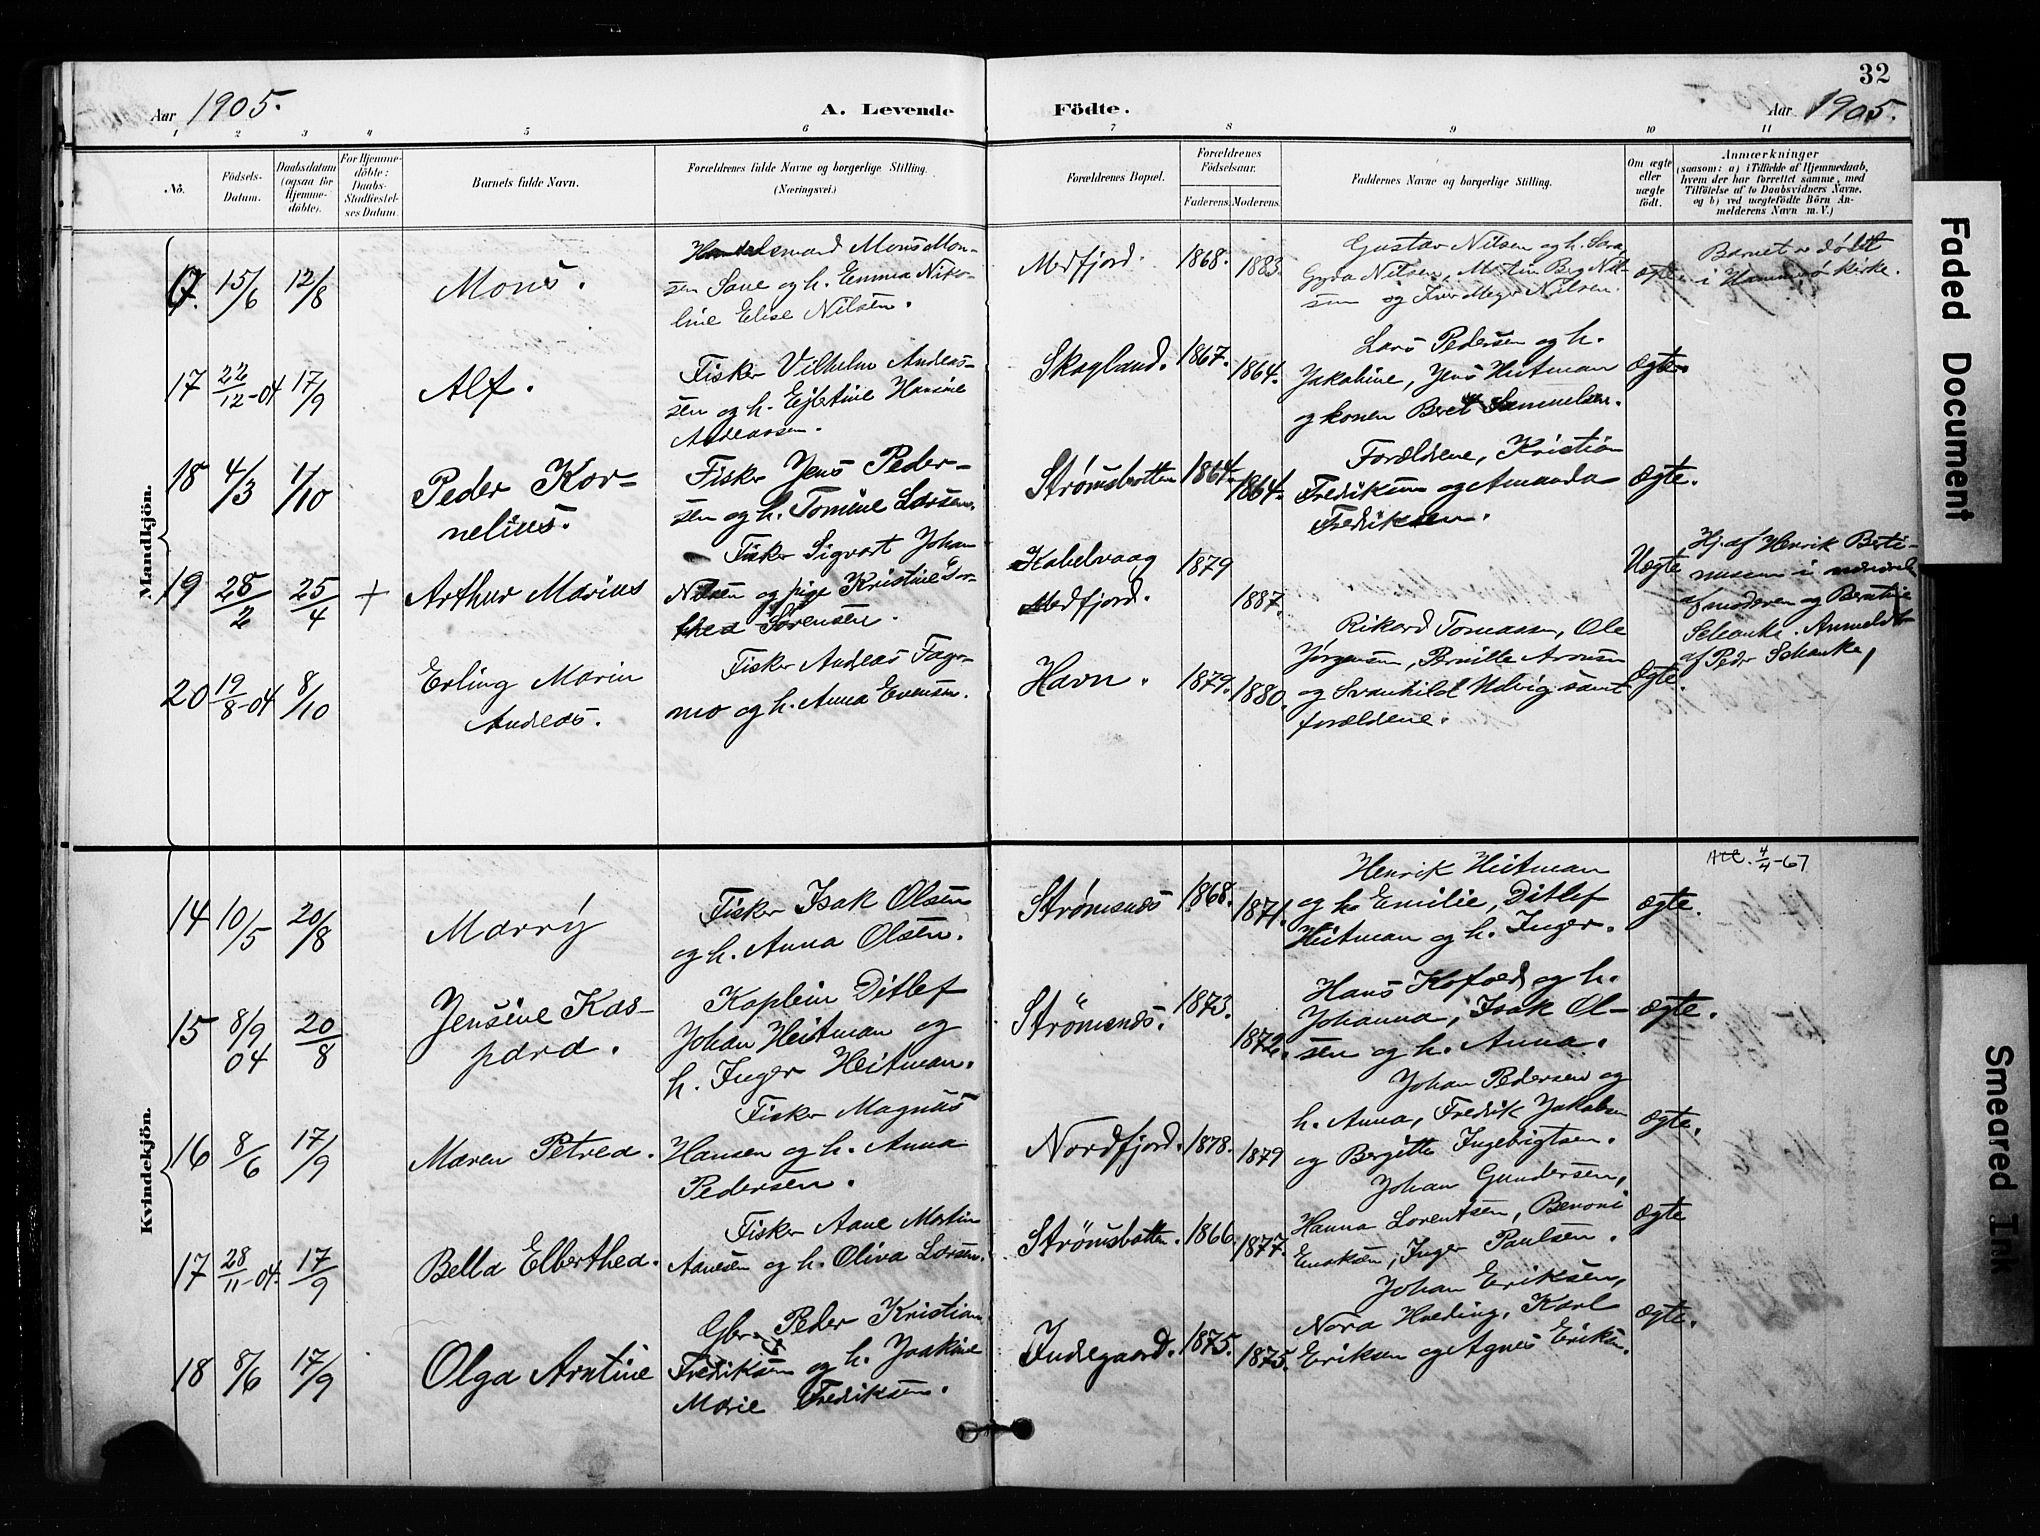 32
Aar 1905.
A. Levende
Födte.
Aar 1905.
1 2 3 4 5 6 7 8 9 10 11
No.
Födsels-
Datum.
Daabsdatum
(ogsaa for
Hjemme-
döbte).
For Hjemme-
döbte:
Daabs-
Stadfæstel-
ses Datum.
Barnets fulde Navn.
Forældrenes fulde Navne og borgerlige Stilling.
(Næringsvei.)
Forældrenes Bopæl.
Forældrenes
Födselsaar.
Faderens.
Moderens.
Faddernes Navne og borgerlige Stilling.
Om ægte
eller
uægte
født.
Anmærkninger
(saasom: a) i Tilfælde af Hjemmedaab,
hvem der har forrettet samme, med
Tilföielse af to Daabsvidners Navne.
og b) ved uægtefödte Börn An-
melderens Navn m. V.)
Mandkjön.
15/6 12/8
Mons.
Mons Mon-
sen Sane og h. Emma Niko-
line Elise Nilsen.
Medfjord.
1868.
1883.
Gustav Nilsen og h. Sara
Gyda Nilsen, Martin Berg Nil-
sen og Iver Meyer Nilsen.
ægte
Barnet er døbt
i Hammerø kirke.
17 22/12-04 17/9
Alf.
Fisker Vilhelm Andreas-
sen og h. Ejletine Hansine
Andreassen.
Skogland.
1867.
1864.
Lars Pedersen og h.
Jakobine, Jens Heitman
og konen Beret Samuelsen.
ægte.
18 4/3 1/10
Peder Kor-
nelius.
Fisker Jens Peder-
sen og h. Tomine Larsen.
Strømsbotten
1864.
1864.
Forældrene, Kristian
Fredriksen og Amanda
Fredriksen.
ægte.
19 28/2 25/4 +
Arthur Marius
Fisker Sigvart Johan
Nilsen og pige Kristine Do-
thea Sørensen.
Kabelvaag
Medfjord.
1879
1887.
Uægte
Hj. af Henrik Berti-
nussen i nærværelse
af moderen og Berntine
Schanke. Anmeldt
af Peder Schanke,
20 19/8-04 8/10
Erling Marin
Andreas.
Fisker Andreas Fager-
mo og h. Anna Evensen.
Havn.
1879.
1880.
Rikard Tomassen, Ole
Jørgensen, Pernille Aronsen
og Svanhild Udvig samt
forældrene.
ægte.
Kvindekjön.
14 10/5 20/8
Marry
Fisker Isak Olsen
og h. Anna Olsen.
Strømsnes
1868.
1871.
Henrik Heitman
og h. Emilie, Ditlef
Heitman og h. Inger.
ægte.
Att. 4/4-67
15 8/9 04 20/8
Jensine Kas-
para.
Kaptein Ditlef
Johan Heitman og
h. Inger Heitman.
Strømsnes.
1873.
1872.
Hans Kofoed og h.
Johanna, Isak Ol-
sen og h. Anna.
ægte.
16 8/6 17/9
Maren Petrea.
Fisker Magnus
Hansen og h. Anna
Pedersen.
Nordfjord.
1878.
1879
Johan Pedersen og
h. Anna, Fredrik Jakobsen
og Bergitte Ingebrigtsen.
ægte.
17 28/11-04. 17/9
Bella Elberthea.
Fisker Aane Martin
Aanesen og h. Oliva Larsen.
Strømsbotten.
1866.
1877.
Johan Gundersen,
Hanna Lorentsen, Benoni
Enoksen, Inger Paulsen.
ægte
18 8/6 17/9
Olga Arntine
Gbr. Peder Kristian
Fredriksen og h. Joakine
Marie Fredriksen.
Indregaard.
1875.
1875.
Johan Eriksen,
Nora Hveding, Karl
Eriksen og Agnes Eriksen.
ægte.
Faded Document
Smeared Ink